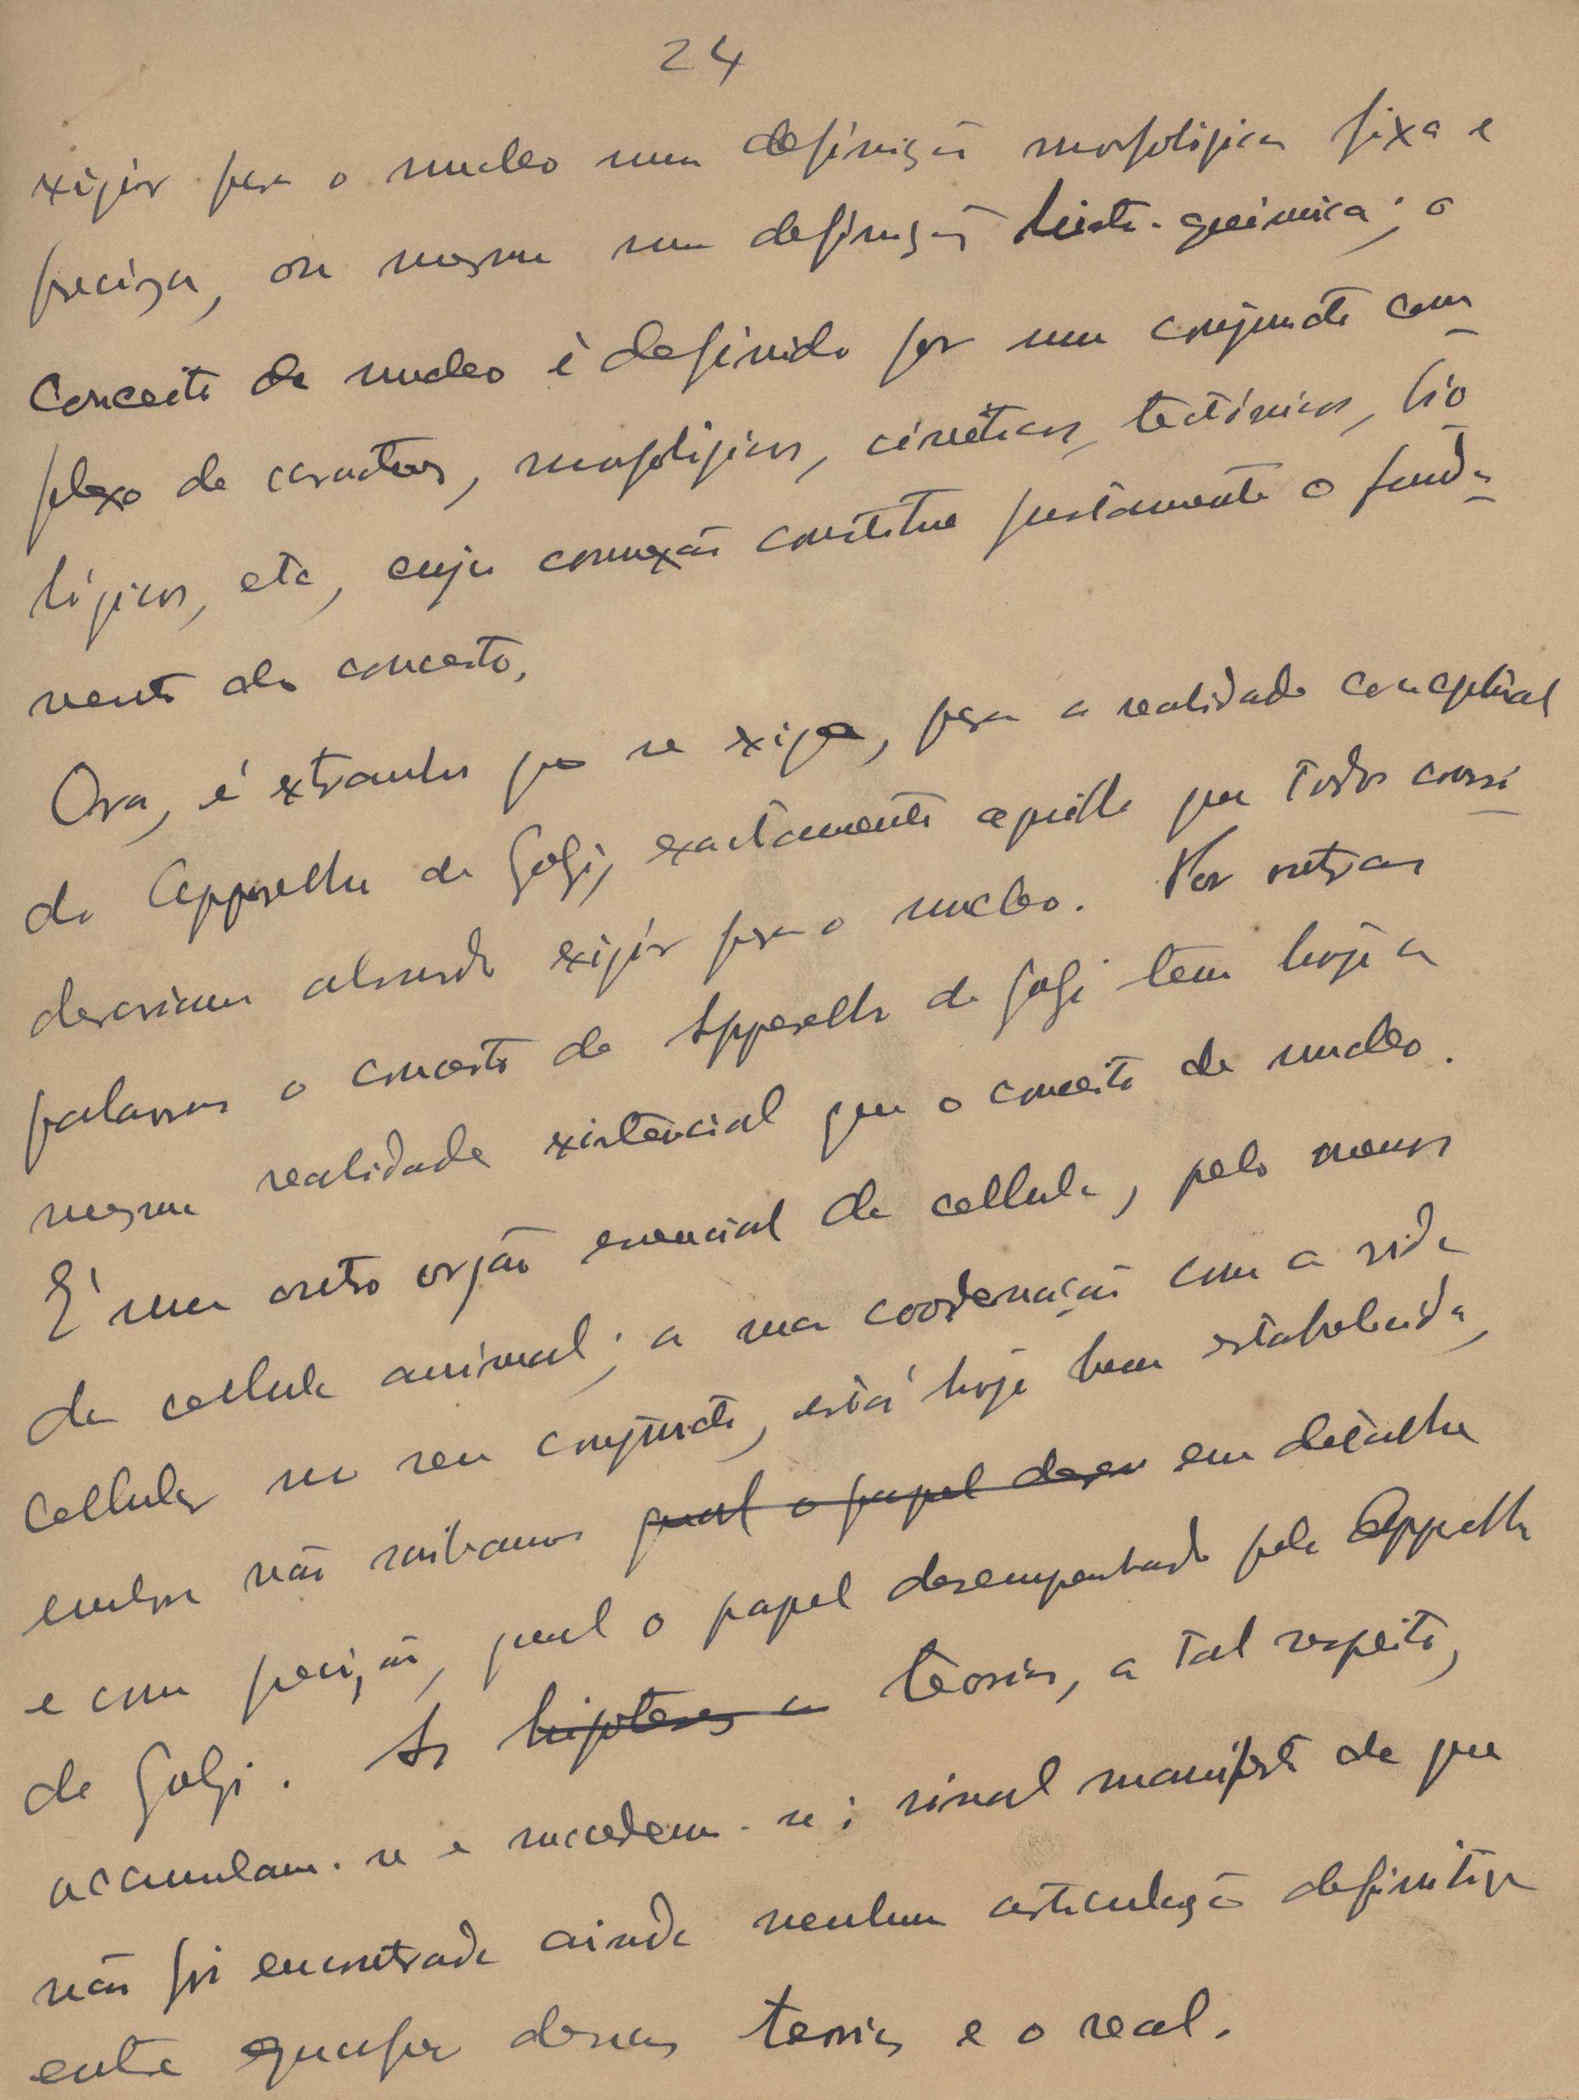 24
exigir para o nucleo uma definição morfologica fixa e
precisa, ou mesmo uma definição histo-quimica; o
conceito de nucleo é definido por um conjuncto com-
plexo de caracteres, morfologicos, cinéticos, tectónicos, bio-
lógicos, etc, cuja connexão constitue justamente o funda-
mento do conceito.
Ora, é extranho que se exija, para a realidade conceptual
do Apparelho de Golgi, exactamente aquillo que todos consi-
derariam absurdo exigir para o nucleo. Por outras
palavras o conceito de Apparelho de Golgi tem hoje a
mesma realidade existencial que o conceito de nucleo.
É um outro orgão essencial da cellula, pelo menos
da cellula animal; a sua coordenação com a vida
cellular no seu conjuncto, está hoje bem estabelecida,
embora não saibamos qual o papel desen em detalhe
e com precisão, qual o papel desempenhado pelo Apparelho
de Golgi. As hipoteses a teorias, a tal respeito,
accumulam-se e succedem-se; sinal manifesto de que
não foi encontrada ainda nenhuma articulação definitiva
entre qualquer dessas teorias e o real.